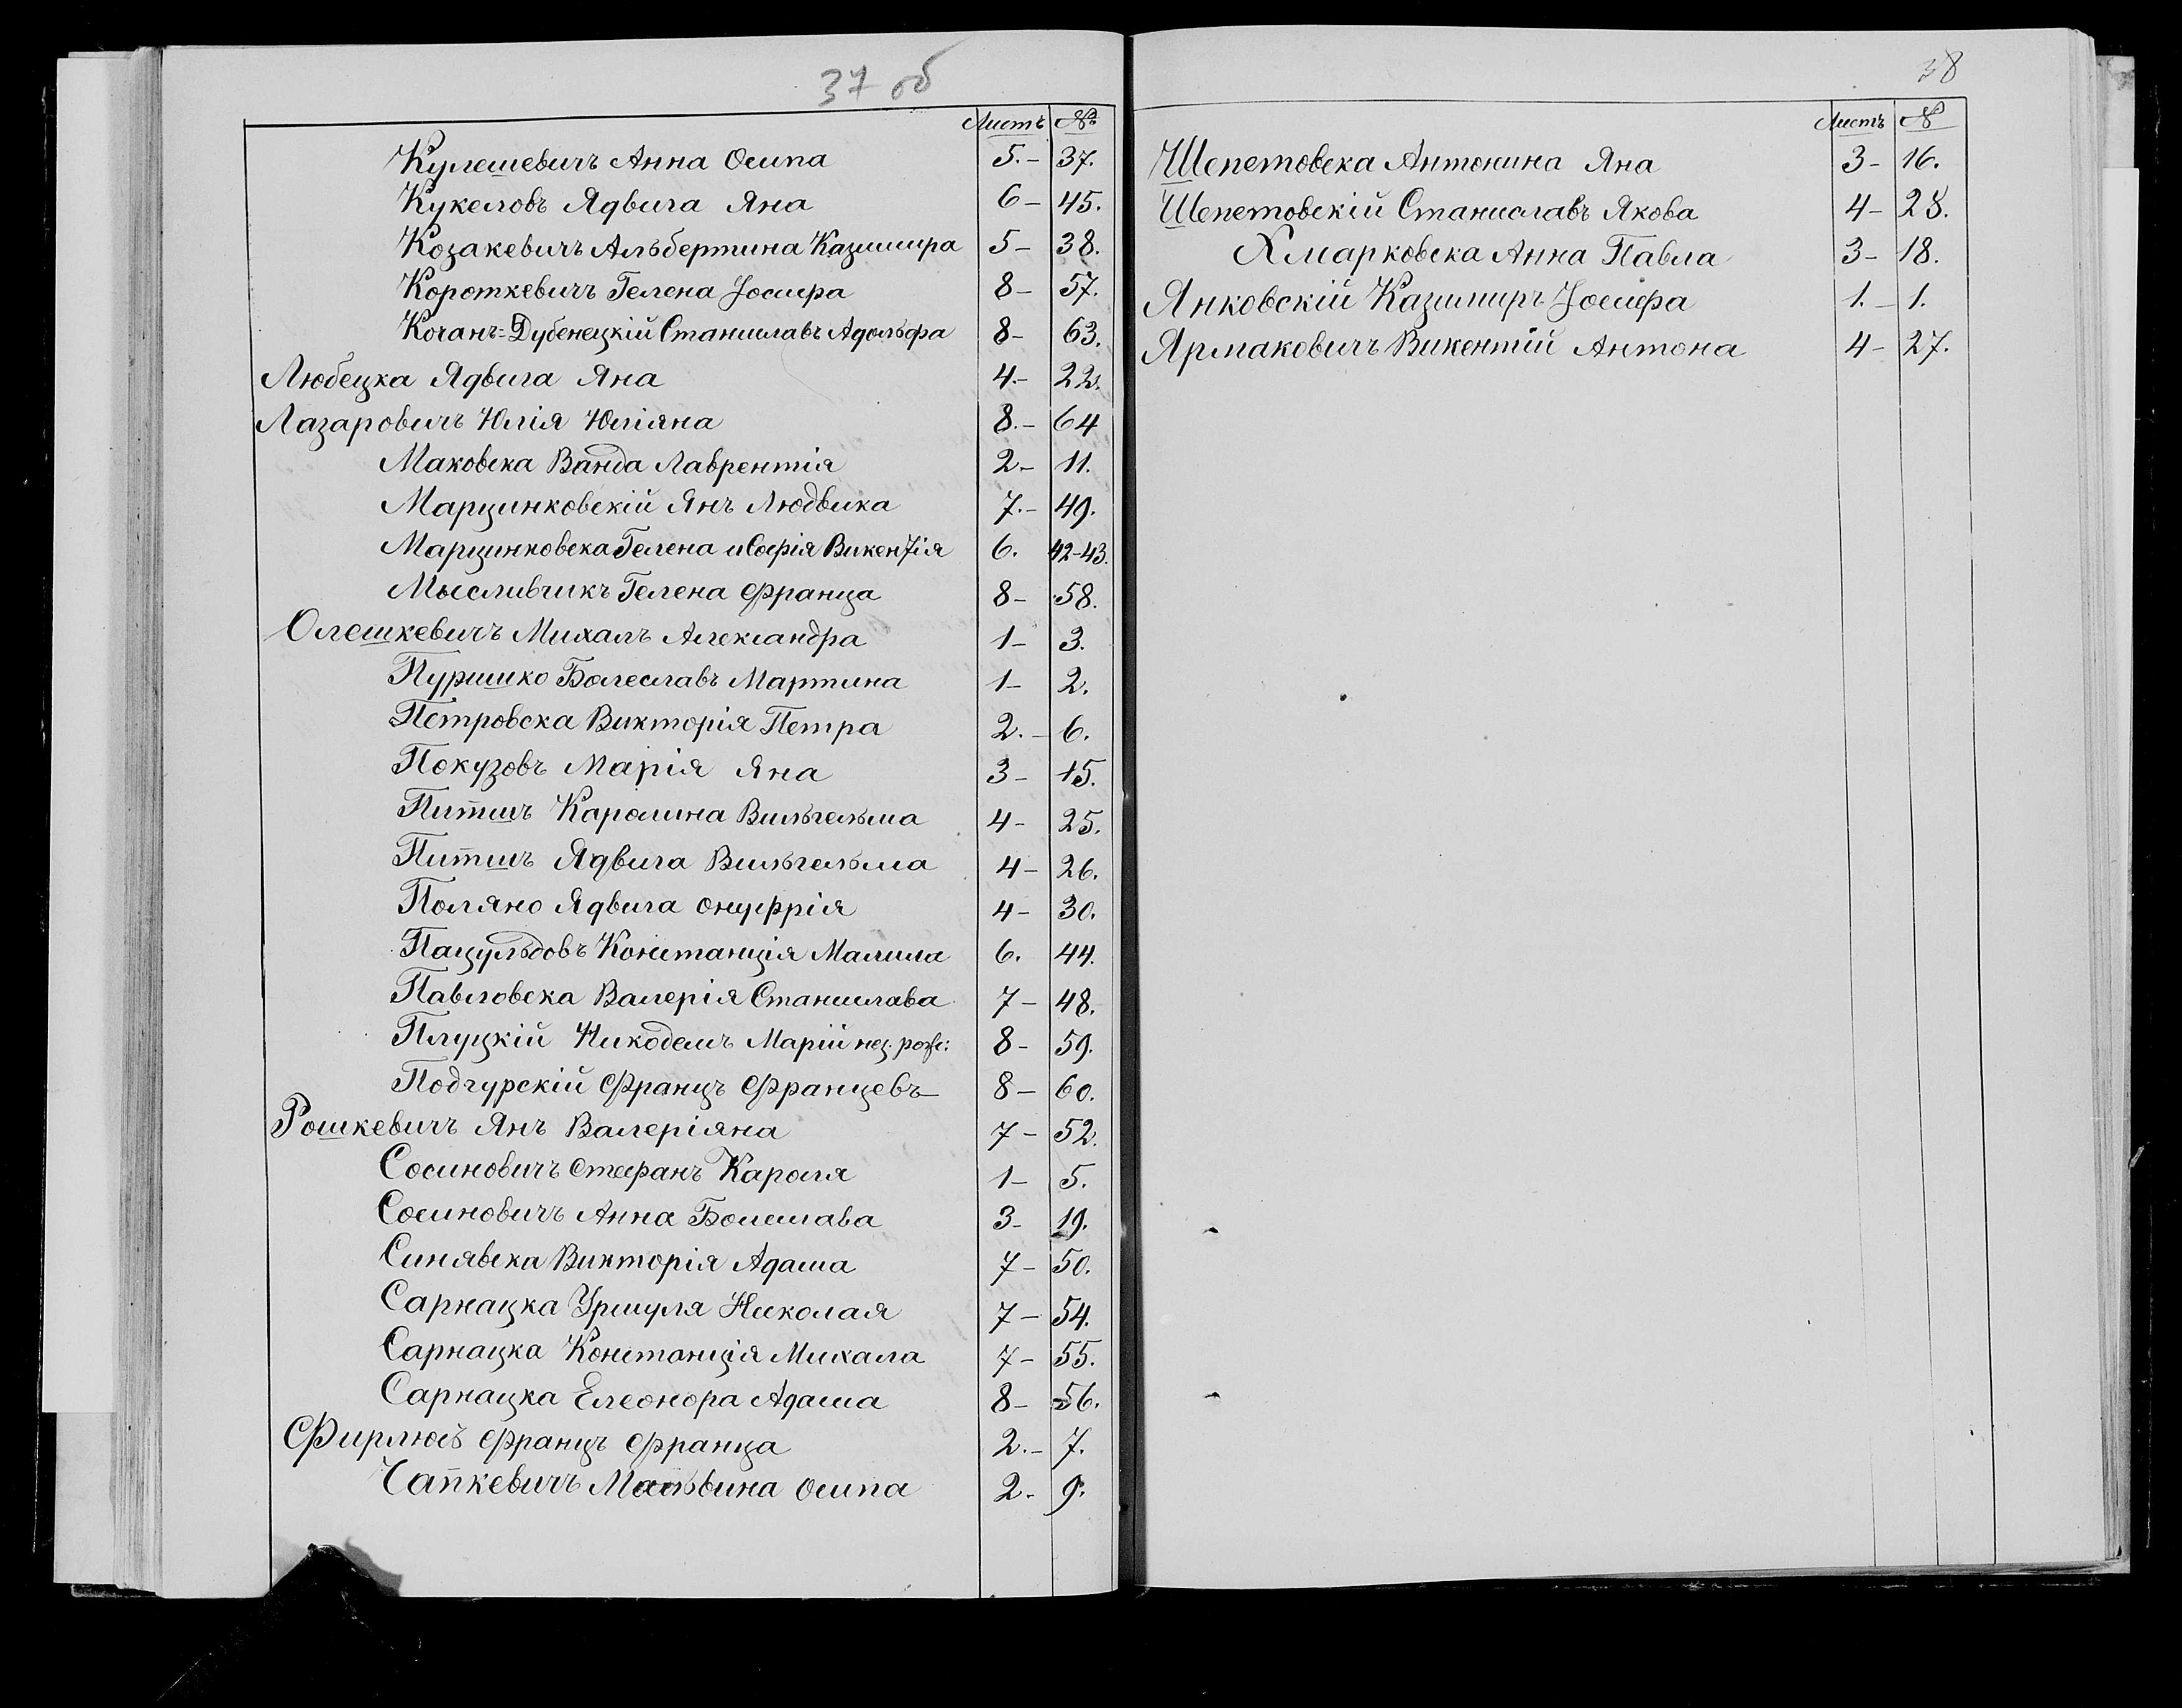 37 об
Листъ №
Кулешевичъ Анна Осипа 5.- 37.
Кукеловъ Ядвига Яна 6- 45.
Козакевичъ Альбертина Казимира 5- 38.
Короткевичъ Гелена Іосифа 8- 57.
Кочанъ=Дубенецкій Станиславъ Адольфа 8- 63.
Любецка Ядвига Яна 4.- 22.
Лазаровичъ Юлія Юліяна 8.- 64
Маковска Ванда Лаврентія 2- 11.
Марцинковскій Янъ Людвика 7.- 49.
Марцинковска Гелена и Софія Викентія 6. 42-43.
Мысливчикъ Гелена Франца 8- 58.
Олешкевичъ Михалъ Александра 1- 3.
Пуришко Болеславъ Мартина 1- 2.
Петровска Викторія Петра 2.- 6.
Покузовъ Марія Яна 3- 15.
Питшъ Каролина Вильгельма 4- 25.
Питшъ Ядвига Вильгельма 4- 26.
Поляно Ядвига Онуфрія 4- 30.
Пацульдовъ Констанція 6. 44.
Павловска Валерія Станислава 7- 48.
Плуцкій Никодемъ Маріи нез. рож: 8- 59.
Подгурскій Францъ Францевъ 8- 60.
Рошкевичъ Янъ Валеріяна 7- 52.
Сосиновичъ Стефанъ Кароля 1- 5.
Сосиновичъ Анна Болеслава 3- 19.
Синявска Викторія Адама 7- 50.
Сарнацка Уршуля Николая 7- 54.
Сарнацка Констанція Михала 7- 55.
Сарнацка Елеонора Адама 8- 56.
Францъ Франца 2.- 7.
Чапкевичъ Мальвина Осипа 2- 9.
38
Листъ №
Шепетовска Антонина Яна 3- 16.
Шепетовскій Станиславъ Якова 4- 28.
Хмарковска Анна Павла 3- 18.
Янковскій Казимиръ Іосифа 1.- 1.
Ярмаковичъ Викентій Антона 4- 27.